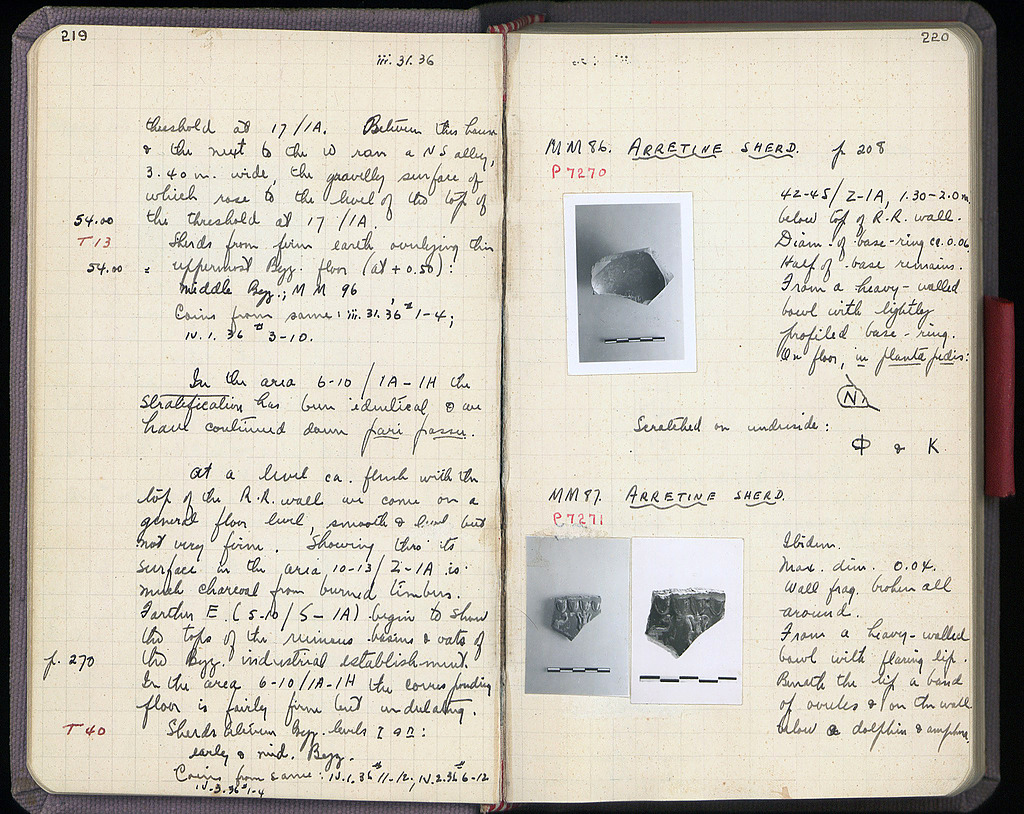 219
iii. 31. 36
threshold at 17/1A. Between this house
& the next to the W ran a NS alley,
3.40 m. wide, the gravelly surface of
which rose to the level of the top of
54.00 the threshold at 17/1A.
T 13 Sherds from firm earth overlying this
54.00 uppermost Byz. floor (at +0.50):
Middle Byz.; MM 96
Coins from same: iii. 31. 36 # 1-4;
iv. 1. 36 # 3-10.
In the area 6-10/1A-1H the
stratification has been identical & we
have continued down pari passu.
At a level ca. flush with the
top of the R.R. wall we come on a
general floor level, smooth & but
not very firm. Showing thro' its
surface in the area 10-13/Z-1A is
much charcoal from burned timbers.
Farther E. (5-10/S-1A) begin to show
the tops of the ruinous basins & vats of
p. 270 the Byz. industrial establishment.
In the area 6-10/1A-1H the corresponding
floor is fairly firm but undulating.
T 40 Sherds between Byz. levels I & II:
early & mid. Byz.
Coins from same: iv. 1. 36 # 11-12; iv. 2. 36 # 6-12
iv. 3. 36 # 1-4
220
MM 86. ARRETINE SHERD. p. 208
P 7270
42-45/Z-1A, 1.30-2.0 m.
below top of R.R. wall.
Diam. of base-ring ca. 0.06
Half of base remains.
From a heavy-walled
bowl with lightly
profiled base-ring.
On floor, in planta pedis:
N
Scratched on underside:
Φ & K
MM 87. ARRETINE SHERD.
P 7271
Ibidem.
Max. dim. 0.04.
Wall frag. broken all
around.
From a heavy-walled
bowl with flaring lip.
Beneath the lip a band
of ovules & on the wall
below a dolphin & amphora.